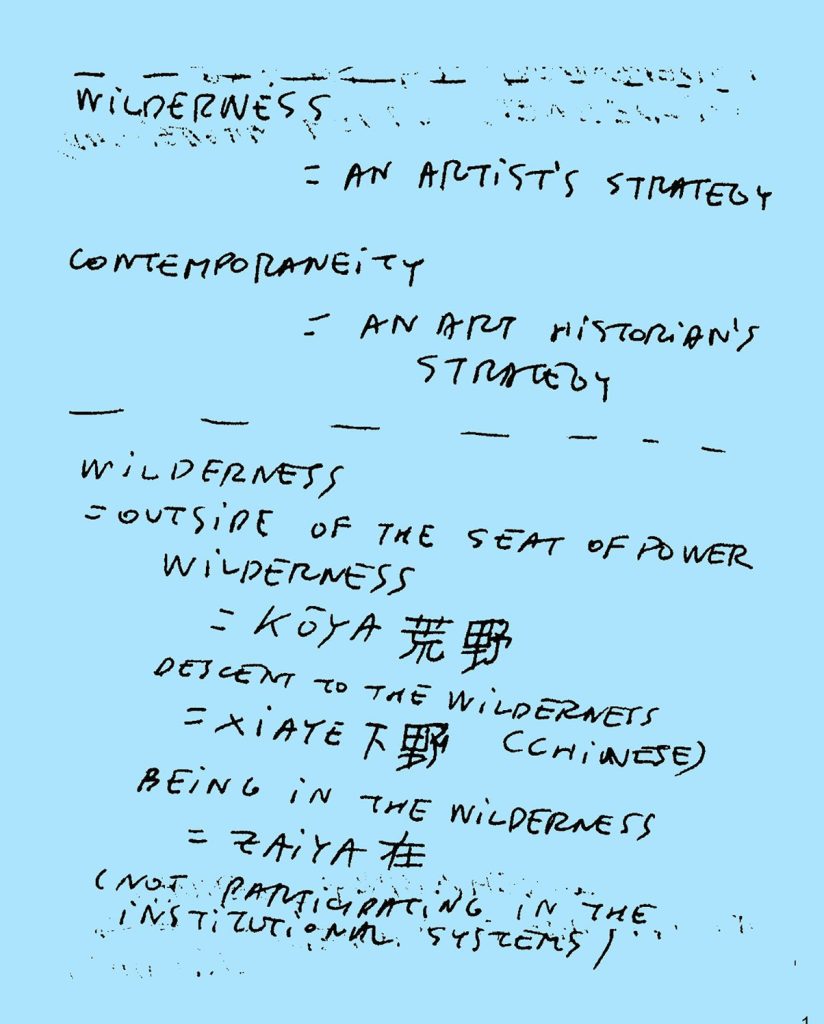 WILDERNESS
= AN ARTIST'S STRATEGY
CONTEMPORANEITY
= AN ART HISTORIAN'S
STRATEGY
WILDERNESS
= OUTSIDE OF THE SEAT OF POWER
WILDERNESS
= KŌYA 荒野
DESCENT TO THE WILDERNESS
= XIAYE 下野 (CHINESE)
BEING IN THE WILDERNESS
= ZAIYA 在
(NOT PARTICIPATING IN THE
INSTITUTIONAL SYSTEMS)
1